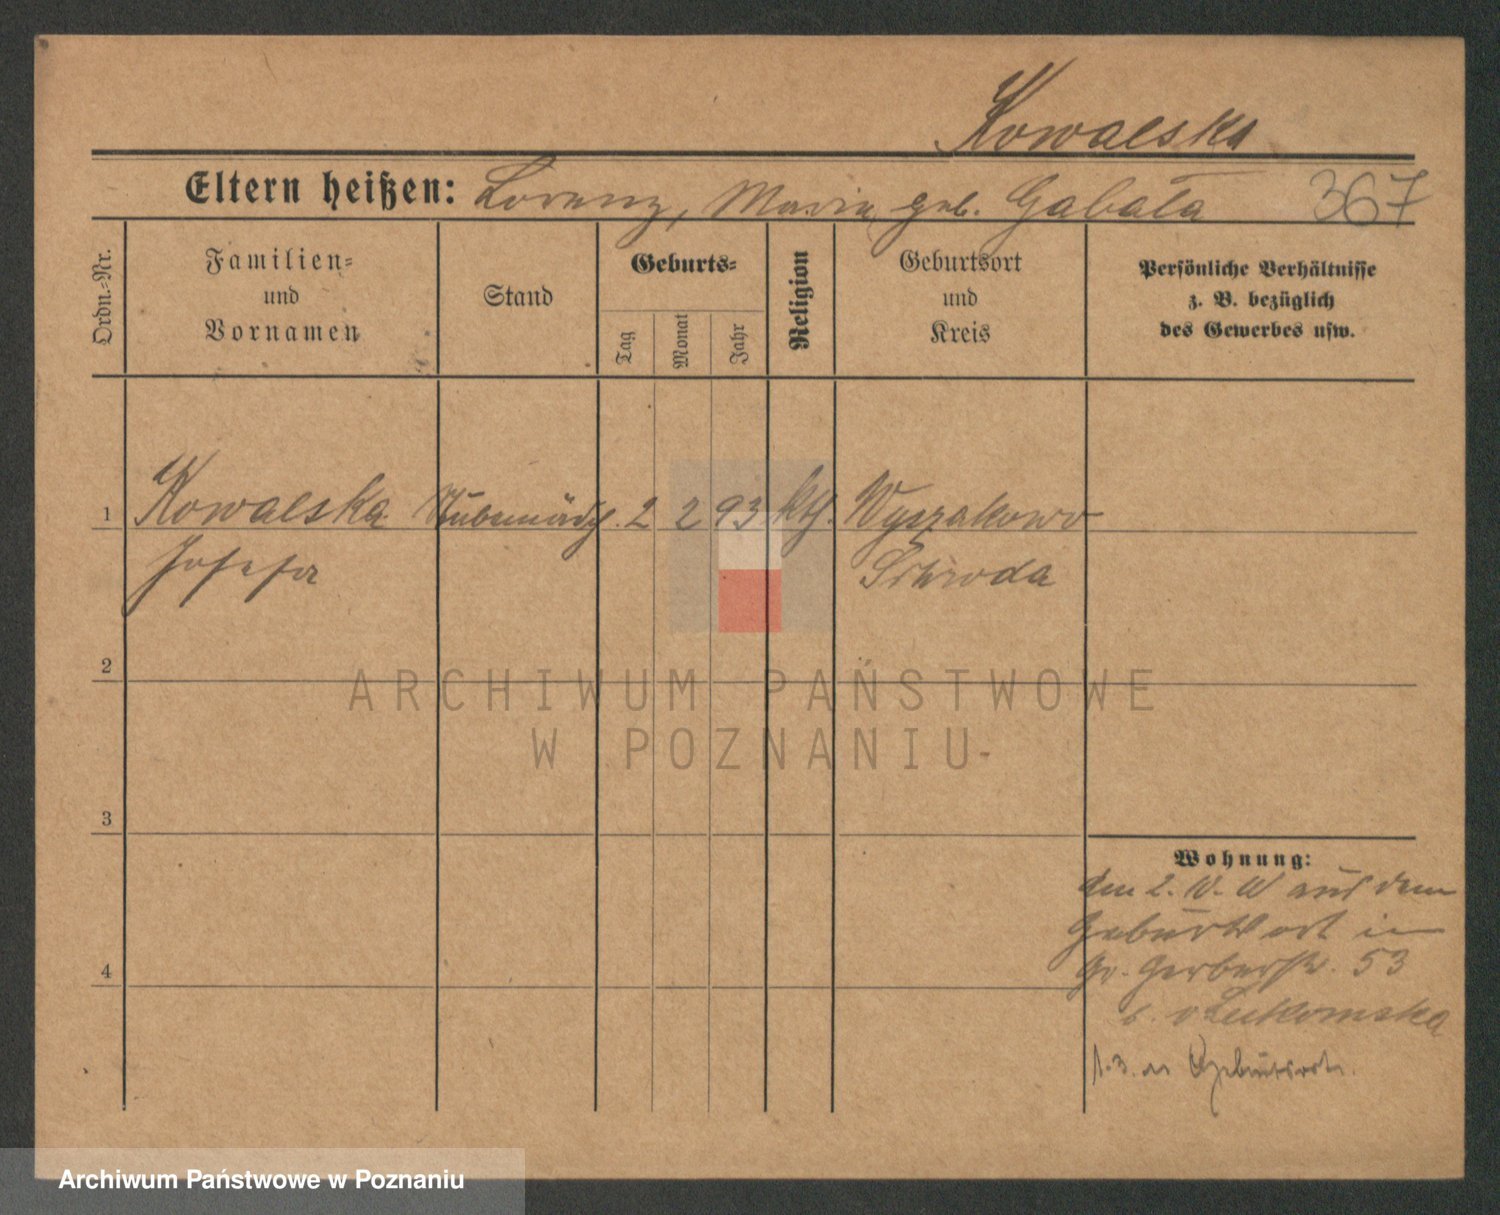 Kowalska
Eltern heißen: Lorenz, Maria geb. Gabała 367
Ordn.-Nr.
Familien- und Vornamen
Stand
Geburts-
Tag
Monat
Jahr
Religion
Geburtsort und Kreis
Persönliche Verhältnisse
z. B. bezüglich
des Gewerbes usw.
1 Kowalska Stubenmädch. 2 2 93 kth. Wyszakowo
Josefa Schroda
2
ARCHIWUM PAŃSTWOWE
W POZNANIU
3
Wohnung:
den 2. aus dem
Geburtsort in
4
Gr. Gerberstr. 53
b. v Lukomska
1.3. Geburtsort.
Archiwum Państwowe w Poznaniu